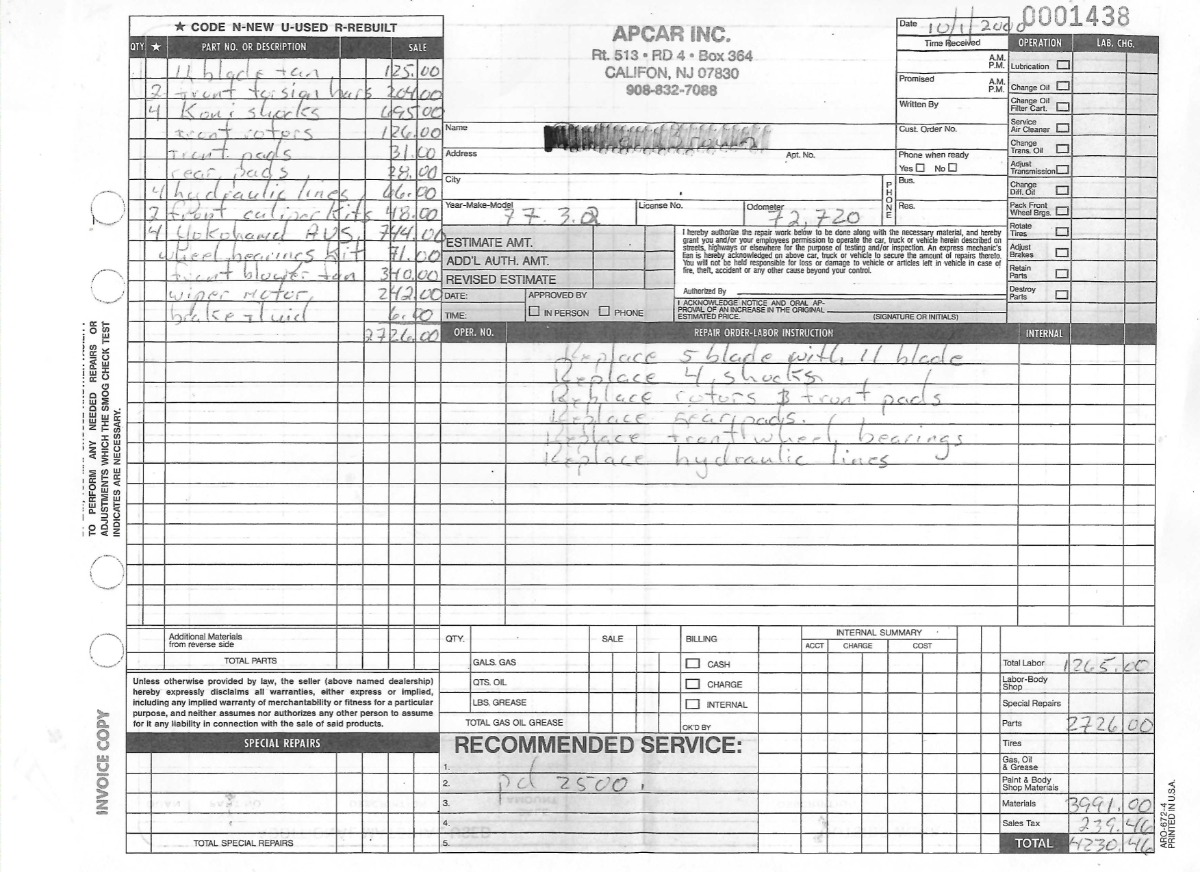 ★ CODE N-NEW U-USED R-REBUILT
QTY ★ PART NO. OR DESCRIPTION SALE
11 blade fan 125.00
2 front torsion bars 204.00
4 Koni shocks 695.00
front rotors 126.00
front pads 31.00
rear pads 28.00
4 hydraulic lines 66.00
2 front culiper kits 48.00
4 Yokohama AVS. 744.00
wheel bearings kit 71.00
front blower fan 340.00
wiper motor, 242.00
brake fluid 6.00
2726.00
APCAR INC.
Rt. 513 • RD 4 • Box 364
CALIFON, NJ 07830
908-832-7088
0001438
Date 10/1/2000
Time Received
A.M.
P.M.
Promised A.M.
P.M.
Written By
Name
Cust. Order No.
Address Apt. No.
Phone when ready
Yes No
City
PHONE
Bus.
Res.
Year-Make-Model 77 3.2 License No. Odometer 72,720
OPERATION LAB. CHG.
Lubrication
Change Oil
Change Oil
Filter Cart.
Service
Air Cleaner
Change
Trans. Oil
Adjust
Transmission
Change
Diff. Oil
Pack Front
Wheel Brgs.
Rotate
Tires
Adjust
Brakes
Retain
Parts
Destroy
Parts
ESTIMATE AMT.
ADD'L AUTH. AMT.
REVISED ESTIMATE
DATE: APPROVED BY
TIME: IN PERSON PHONE
I hereby authorize the repair work below to be done along with the necessary material, and hereby
grant you and/or your employees permission to operate the car, truck or vehicle herein described on
streets, highways or elsewhere for the purpose of testing and/or inspection. An express mechanic's
lien is hereby acknowledged on above car, truck or vehicle to secure the amount of repairs thereto.
You will not be held responsible for loss or damage to vehicle or articles left in vehicle in case of
fire, theft, accident or any other cause beyond your control.
Authorized By
I ACKNOWLEDGE NOTICE AND ORAL AP-
PROVAL OF AN INCREASE IN THE ORIGINAL
ESTIMATED PRICE. (SIGNATURE OR INITIALS)
OPER. NO. REPAIR ORDER-LABOR INSTRUCTION INTERNAL
Replace 5 blade with 11 blade
Replace 4 shocks
Replace rotors & front pads
Replace rear pads.
Replace front wheel bearings
Replace hydraulic lines
TO PERFORM ANY NEEDED REPAIRS OR
ADJUSTMENTS WHICH THE SMOG CHECK TEST
INDICATES ARE NECESSARY.
INVOICE COPY
Additional Materials
from reverse side
TOTAL PARTS
Unless otherwise provided by law, the seller (above named dealership)
hereby expressly disclaims all warranties, either express or implied,
including any implied warranty of merchantability or fitness for a particular
purpose, and neither assumes nor authorizes any other person to assume
for it any liability in connection with the sale of said products.
SPECIAL REPAIRS
TOTAL SPECIAL REPAIRS
QTY. SALE
GALS. GAS
QTS. OIL
LBS. GREASE
TOTAL GAS OIL GREASE
BILLING
CASH
CHARGE
INTERNAL
OK'D BY
INTERNAL SUMMARY
ACCT CHARGE COST
RECOMMENDED SERVICE:
1.
2. pd 2500.
3.
4.
5.
Total Labor 1265.00
Labor-Body
Shop
Special Repairs
Parts 2726.00
Tires
Gas, Oil
& Grease
Paint & Body
Shop Materials
Materials 3991.00
Sales Tax 239.46
TOTAL 4230.46
ARO-672-4
PRINTED IN U.S.A.